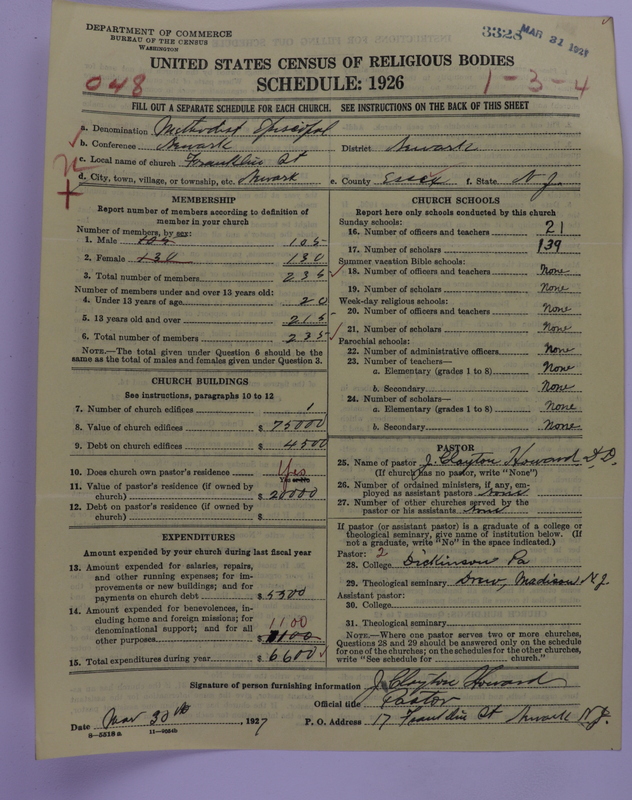 DEPARTMENT OF COMMERCE
BUREAU OF THE CENSUS
WASHINGTON
3328 MAR 31 1927
UNITED STATES CENSUS OF RELIGIOUS BODIES
SCHEDULE: 1926
048
1-3-4
FILL OUT A SEPARATE SCHEDULE FOR EACH CHURCH. SEE INSTRUCTIONS ON THE BACK OF THIS SHEET
a. Denomination Methodist Episcopal
b. Conference Newark District Newark
c. Local name of church Franklin St
d. City, town, village, or township, etc. Newark e. County Essex f. State N J.
MEMBERSHIP
Report number of members according to definition of member in your church
Number of members, by sex:
1. Male 105 105
2. Female 130 130
3. Total number of members 235
Number of members under and over 13 years old:
4. Under 13 years of age 20
5. 13 years old and over 215
6. Total number of members 235
NOTE.—The total given under Question 6 should be the same as the total of males and females given under Question 3.
CHURCH BUILDINGS
See instructions, paragraphs 10 to 12
7. Number of church edifices 1
8. Value of church edifices $ 75000
9. Debt on church edifices $ 4500
10. Does church own pastor's residence Yes
Yes or No
11. Value of pastor's residence (if owned by church) $ 20000
12. Debt on pastor's residence (if owned by church) $
EXPENDITURES
Amount expended by your church during last fiscal year
13. Amount expended for salaries, repairs, and other running expenses; for improvements or new buildings; and for payments on church debt $ 5500
14. Amount expended for benevolences, including home and foreign missions; for denominational support; and for all other purposes $ 1100
1100
15. Total expenditures during year $ 6600
CHURCH SCHOOLS
Report here only schools conducted by this church
Sunday schools:
16. Number of officers and teachers 21
17. Number of scholars 139
Summer vacation Bible schools:
18. Number of officers and teachers None
19. Number of scholars None
Week-day religious schools:
20. Number of officers and teachers None
21. Number of scholars None
Parochial schools:
22. Number of administrative officers None
23. Number of teachers—
a. Elementary (grades 1 to 8) None
b. Secondary None
24. Number of scholars—
a. Elementary (grades 1 to 8) None
b. Secondary None
PASTOR
25. Name of pastor J. Clayton Howard D.D.
(If church has no pastor, write "None")
26. Number of ordained ministers, if any, employed as assistant pastors None
27. Number of other churches served by the pastor or his assistants None
If pastor (or assistant pastor) is a graduate of a college or theological seminary, give name of institution below. (If not a graduate, write "No" in the space indicated.)
Pastor: 2
28. College Dickinson Pa
29. Theological seminary Drew, Madison N J.
Assistant pastor:
30. College
31. Theological seminary
NOTE.—Where one pastor serves two or more churches, Questions 28 and 29 should be answered only on the schedule for one of the churches; on the schedules for the other churches, write "See schedule for church."
Signature of person furnishing information J. Clayton Howard
Official title Pastor
Date Mar 30th, 1927 P. O. Address 17 Franklin St Newark N.J.
8-5518a 11-9054b